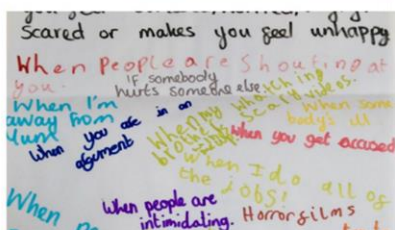 scared or makes you feel unhappy
When People are Shouting at
you.
if somebody
hurts someone else.
When I'm
away from
Mum
When you are in an
argument
When my
brother
whatching
scary videos.
When some
body's ill
When you get accused
When I do
the jobs!
all of
When people are
intimidating.
Horror films
When